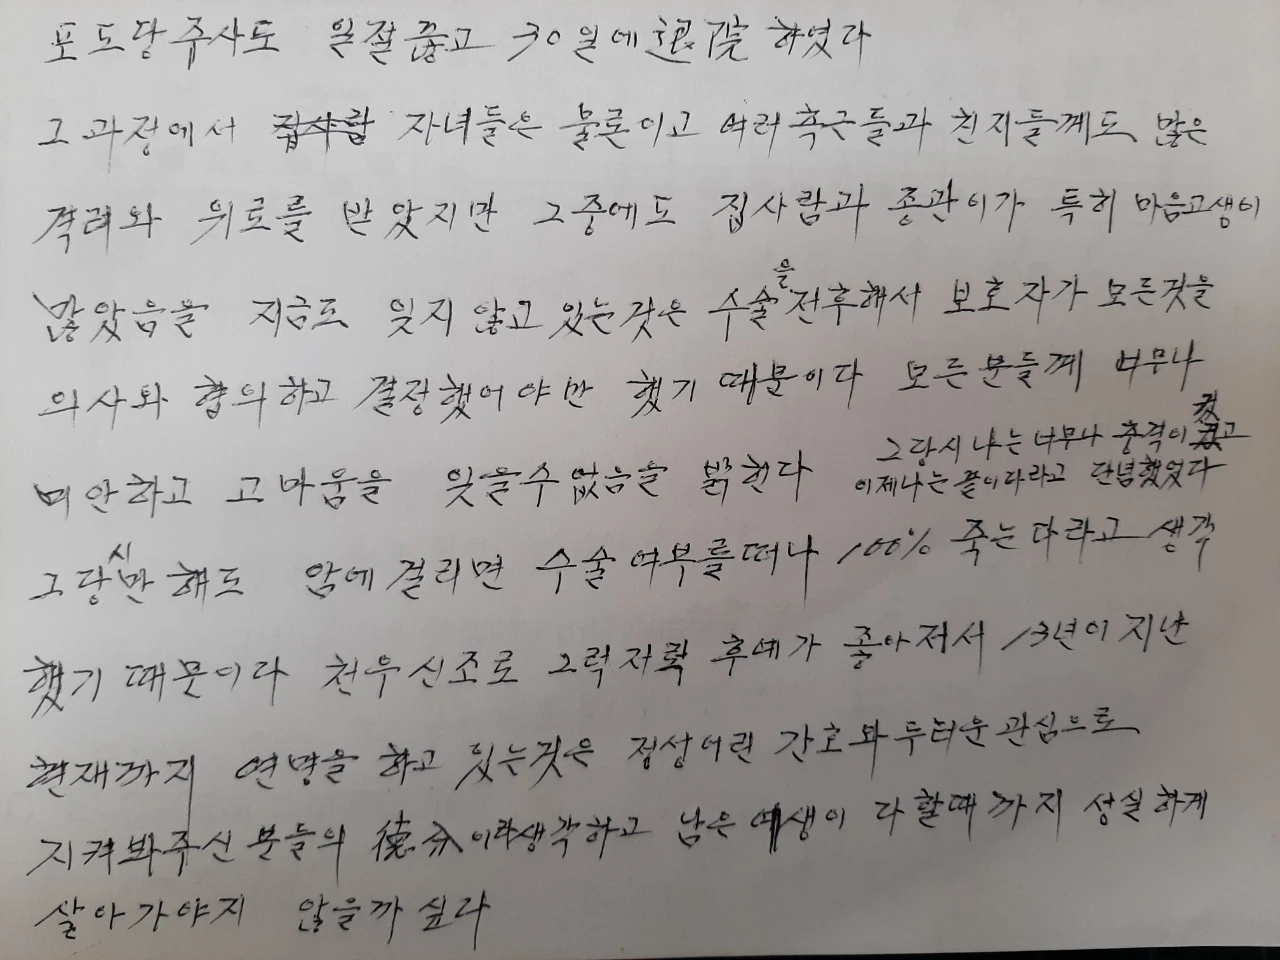 포도당주사도 일절끊고 30일에 退院 하였다
그 과정에서 자녀들은 물론이고 여러측근들과 친지들께도 많은
격려와 위로를 받았지만 그중에도 집사람과 종관이가 특히 마음고생이
많았음을 지금도 잊지 않고 있는것은 수술을 전후해서 보호자가 모든것을
의사와 협의하고 결정했어야만 했기 때문이다 모든분들께 너무나
미안하고 고마움을 잊을수없음을 밝힌다
그당시 나는 너무나 충격이 컸고
이제나는 끝이다라고 단념했었다
그당시만해도 암에걸리면 수술여부를떠나 100% 죽는다라고 생각
했기 때문이다 천우신조로 그럭저럭 후예가 좋아저서 13년이 지난
현재까지 연명을 하고 있는것은 정성어린 간호와 두터운 관심으로
지켜봐주신 분들의 德分이라생각하고 남은 여생이 다할때까지 성실하게
살아가야지 않을까 싶다